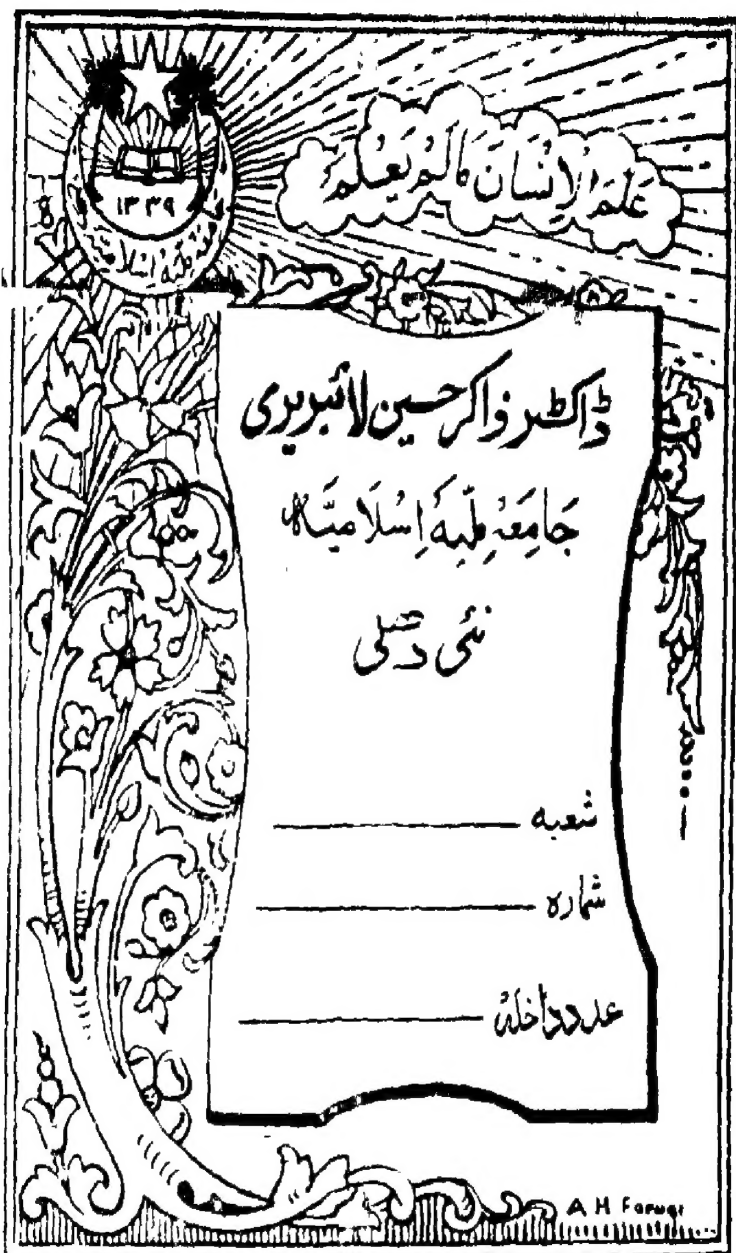 عَلَّمَ الْاِنْسَانَ مَا لَمْ يَعْلَمْ
١٣٣٩
جامعہ ملیہ اسلامیہ
ڈاکٹر ذاکر حسین لائبریری
جَامِعَہ مِلّیَہ اِسْلَامیَّہ
نئی دھلی
شعبہ
شمارہ
عدد داخلہ
A H Faruqi